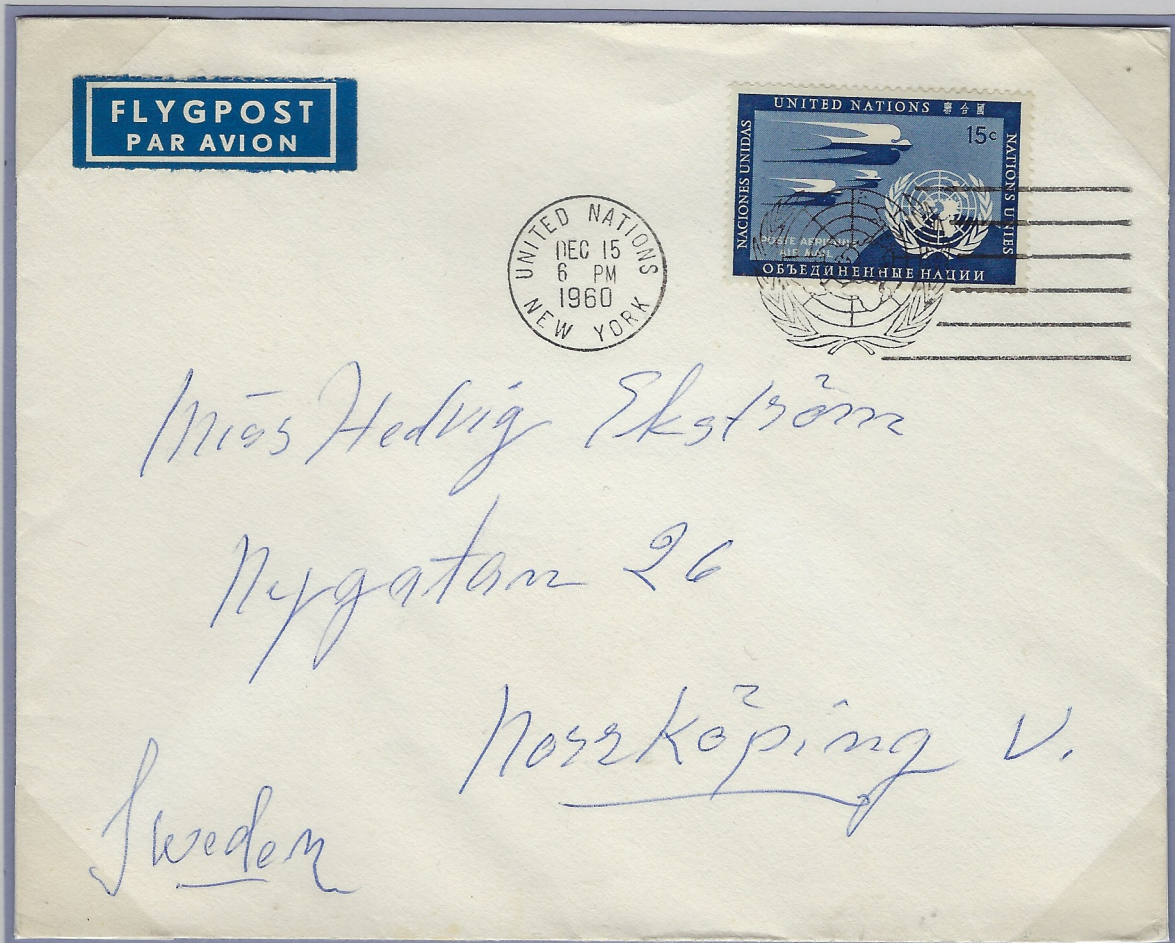 FLYGPOST
PAR AVION
UNITED NATIONS 聯合國
15c
NACIONES UNIDAS
NATIONS UNIES
POSTE AERIENNE
AIR MAIL
ОБЪЕДИНЕННЫЕ НАЦИИ
UNITED NATIONS
DEC 15
6 PM
1960
NEW YORK
Miss Hedvig Ekström
Nygatan 26
Norrköping V.
Sweden